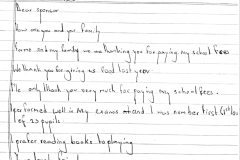 Dear sponsor
How are you and your family
Some and my family we are thanking you for paying my school fees
We thank you for giving us food last year
Me only thank you very much for paying my school fees.
I performed well in My exams and I was number first
of 23 pupils
I prefer reading books to playing